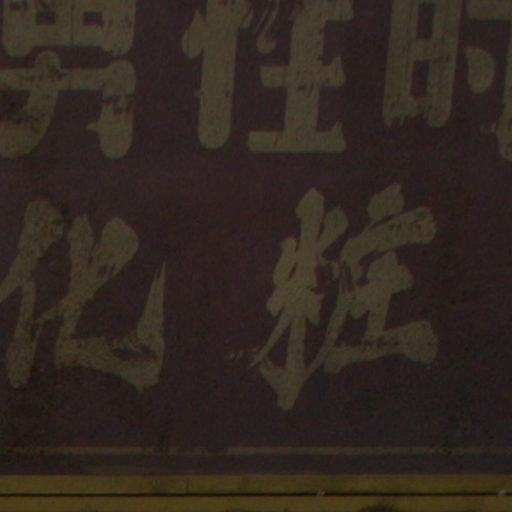 男性时
化粧